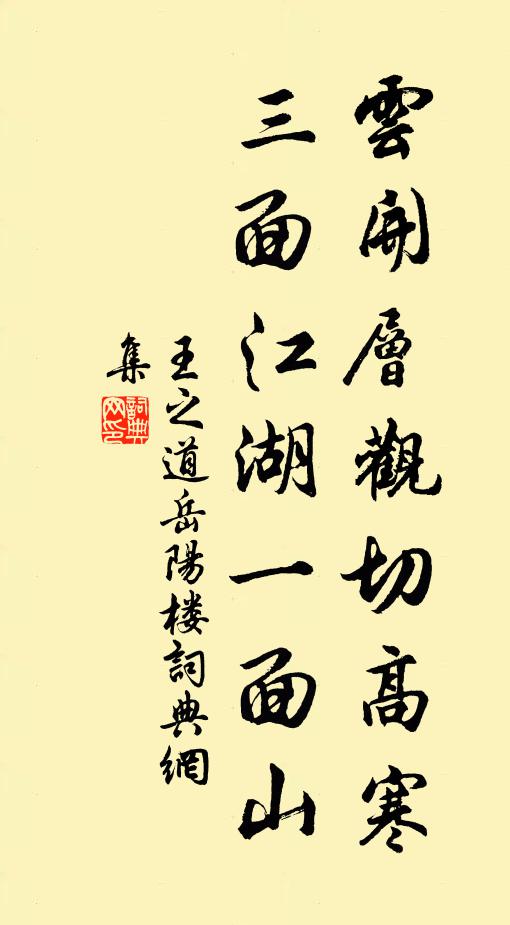 雲開層觀切高寒
三面江湖一面山
王之道岳陽楼詞典網
集
詞典網印